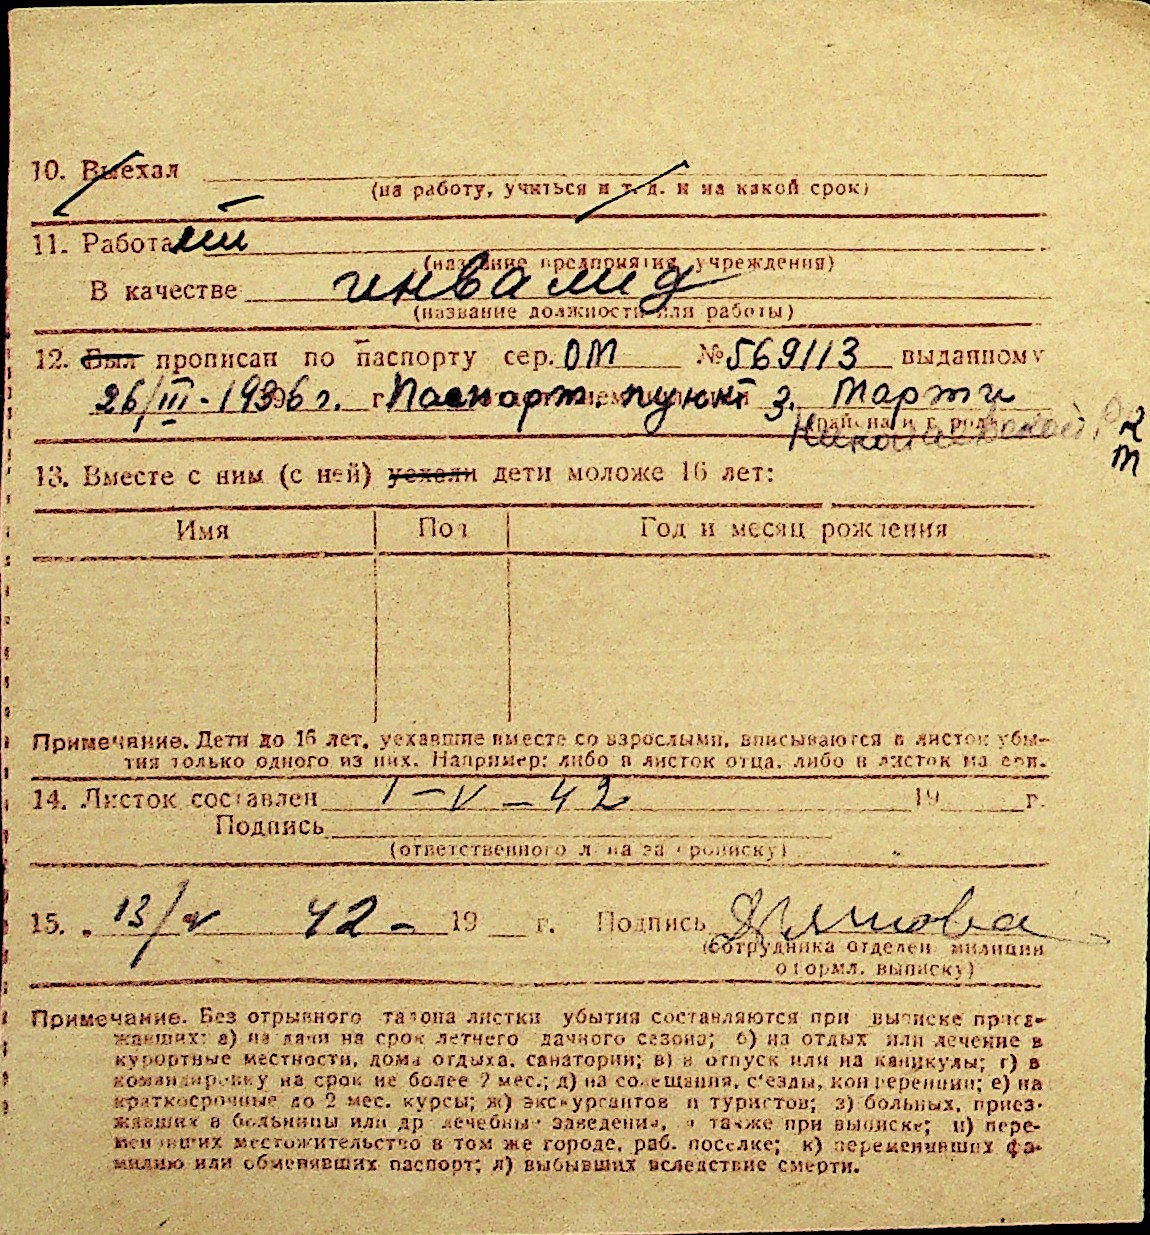 10. Выехал
(на работу, учиться и т. д. и на какой срок)
11. Работа
(название предприятия, учреждения)
В качестве инвалид
(название должности или работы)
12. Был прописан по паспорту сер. ОМ № 569113 выданному
26/III-1936 г. Паспорт. пункт з. Марти
13. Вместе с ним (с ней) уехали дети моложе 16 лет:
Имя Пол Год и месяц рождения
Примечание. Дети до 16 лет, уехавшие вместе со взрослыми, вписываются в листок убы-
тия только одного из них. Например: либо в листок отца, либо в листок матери.
14. Листок составлен 1-V-42 19 г.
Подпись
(ответственного лица за прописку)
15. 13/V 42- 19 г. Подпись
(сотрудника отделен. милиции
оформл. выписку)
Примечание. Без отрывного талона листки убытия составляются при выписке приез-
жавших: а) на дачи на срок летнего дачного сезона; б) на отдых или лечение в
курортные местности, дома отдыха, санатории; в) в отпуск или на каникулы; г) в
командировку на срок не более 2 мес.; д) на совещания, с'езды, конференции; е) на
краткосрочные до 2 мес. курсы; ж) экскургантов и туристов; з) больных, приез-
жавших в больницы или др лечебные заведения, а также при выписке; и) пере-
менивших местожительство в том же городе, раб. поселке; к) переменивших фа-
милию или обменявших паспорт; л) выбывших вследствие смерти.